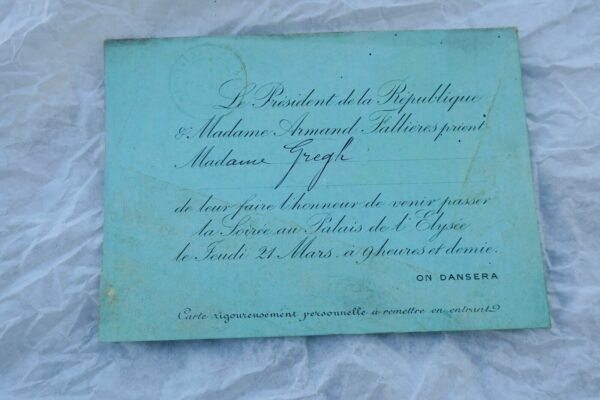 Le Président de la République
& Madame Armand Fallières prient
Madame Gregh
de leur faire l'honneur de venir passer
la Soirée au Palais de l'Elysée
le Jeudi 21 Mars. à 9 heures et demie.
ON DANSERA
Carte rigoureusement personnelle à remettre en entrant